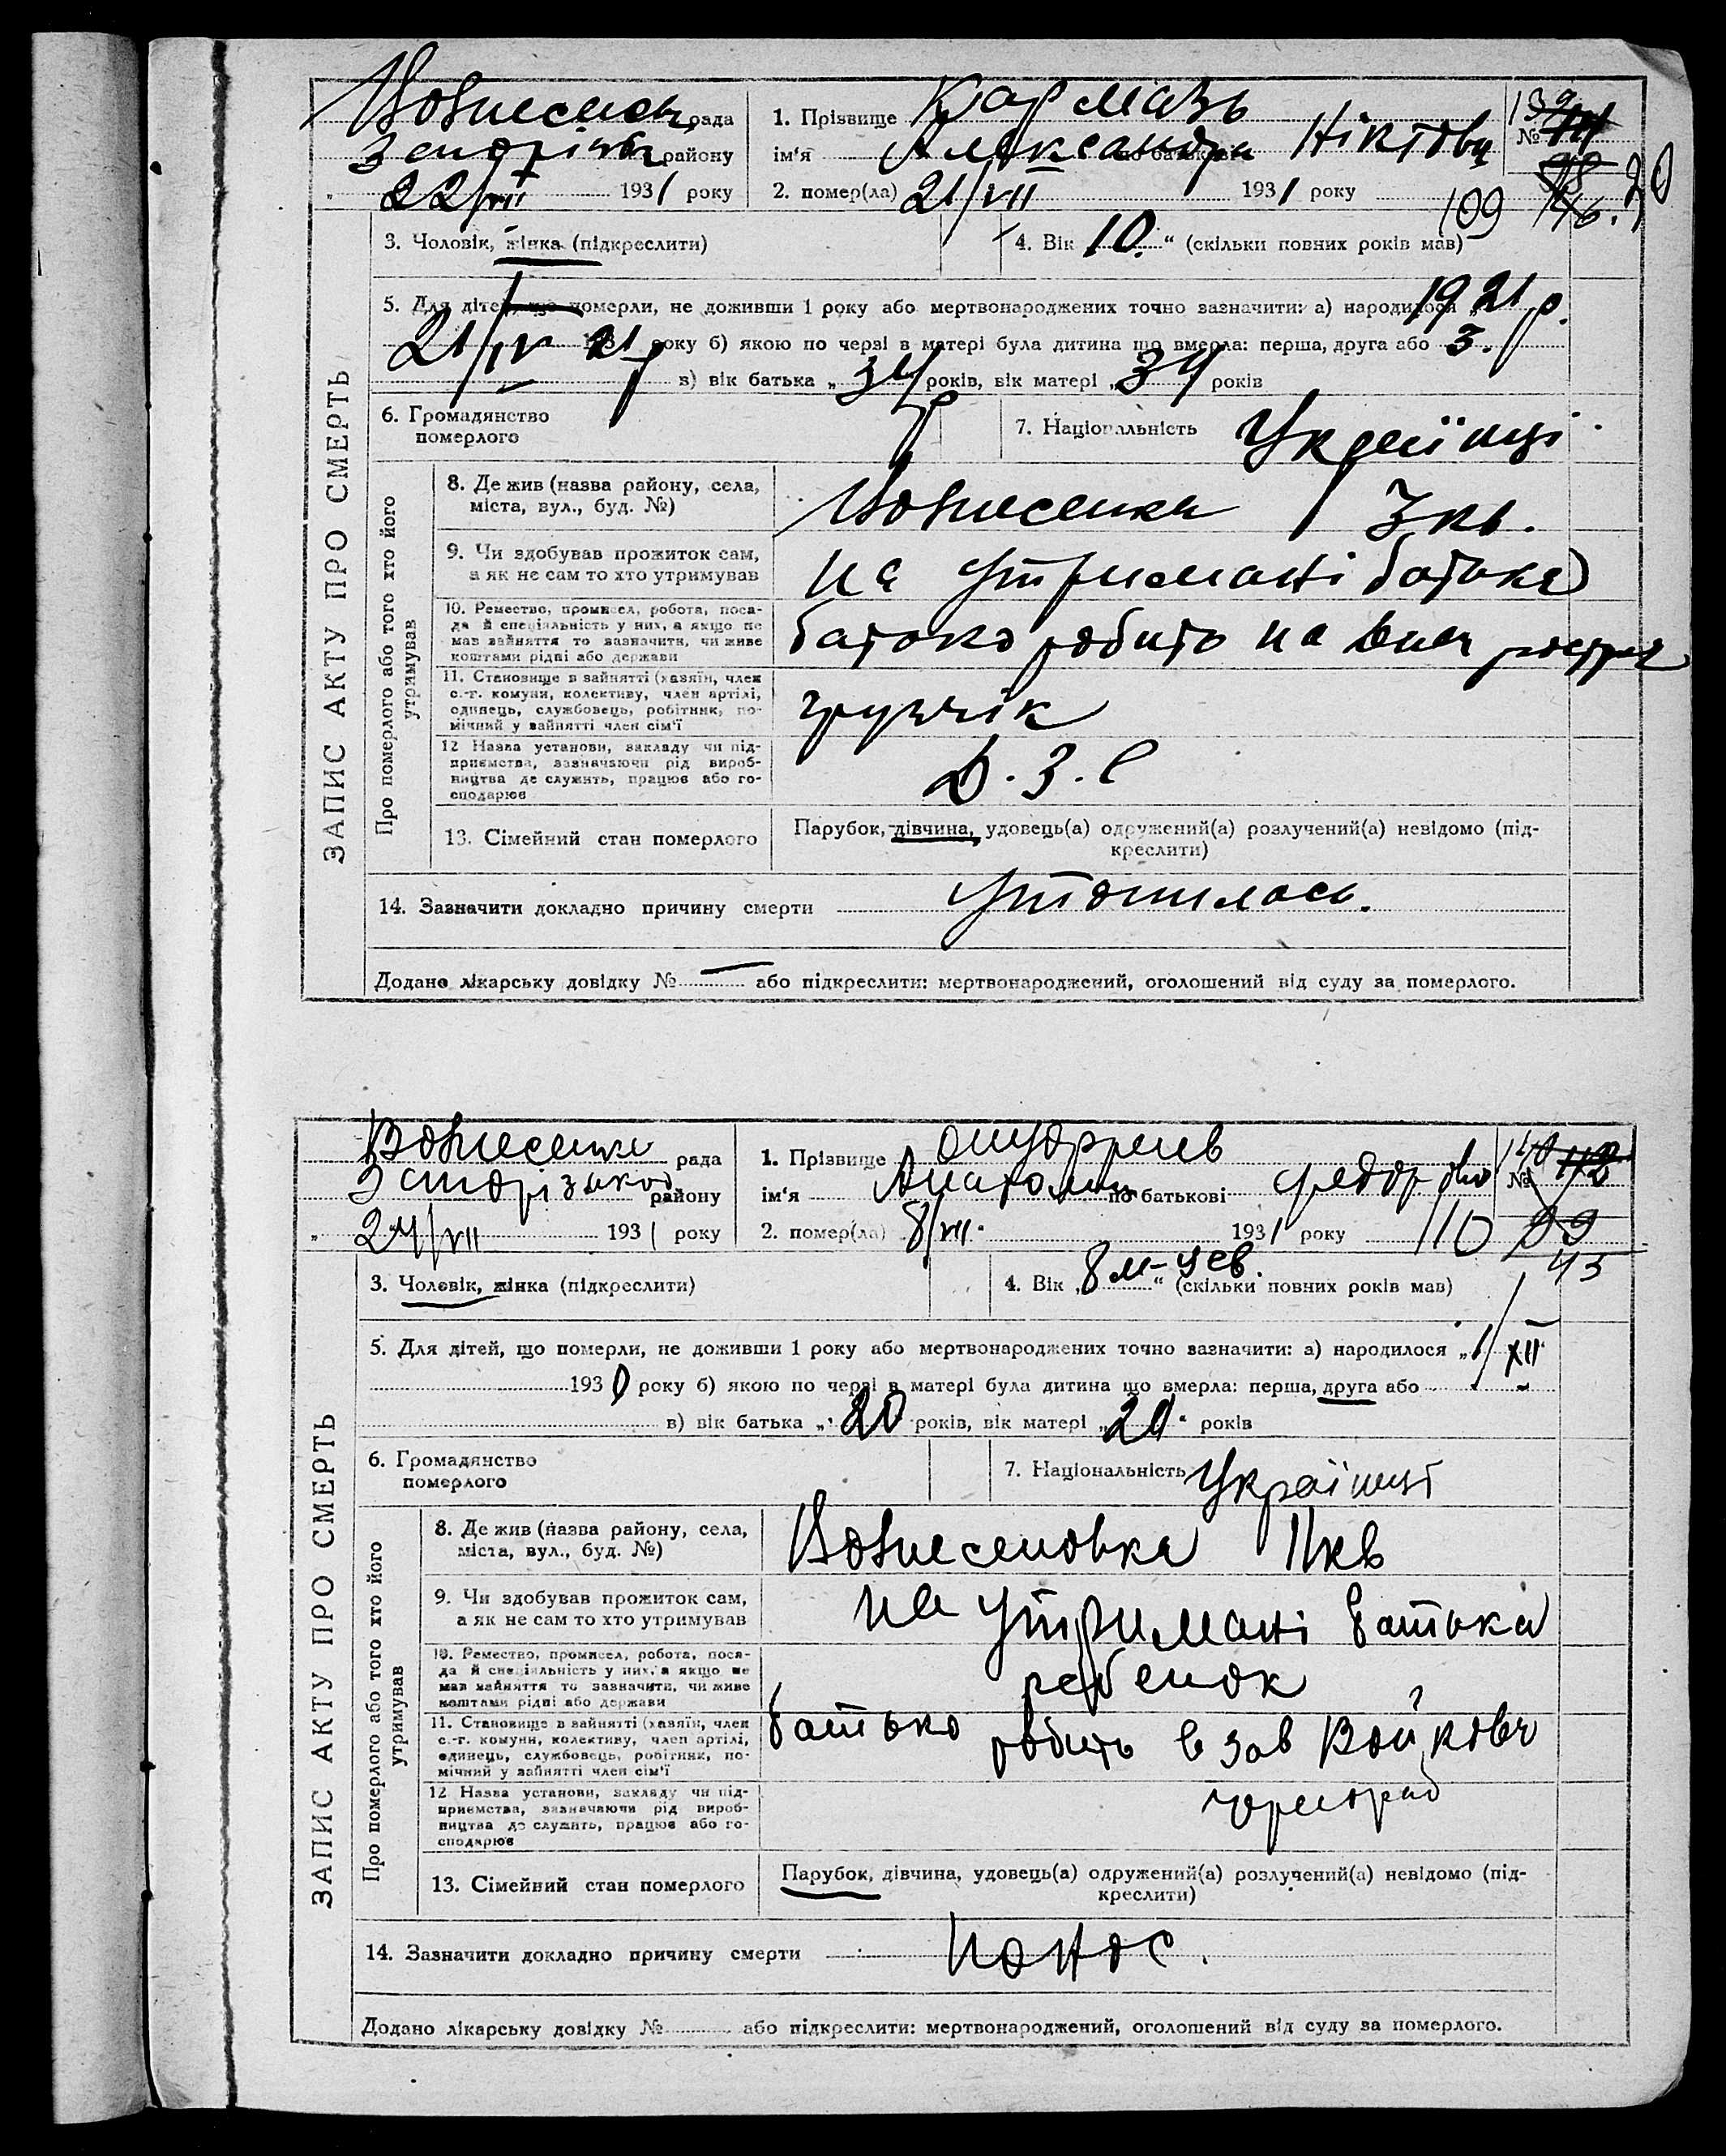 ЗАПИС АКТУ ПРО СМЕРТЬ
рада
району
22/VII 1931 року
1. Прізвище Кармазь
ім'я Александра по батькові
2. помер(ла) 21/VII 1931 року
109
3. Чоловік, жінка (підкреслити)
4. Вік „10“ (скільки повних років мав)
5. Для дітей, що померли, не доживши 1 року або мертвонароджених точно зазначити: а) народилося 1921 р.
21/IV 21 року б) якою по черзі в матері була дитина що вмерла: перша, друга або 3.
в) вік батька „34 років, вік матері „34 років
6. Громадянство
померлого
7. Національність Україці
Про померлого або того хто його
утримував
8. Де жив (назва району, села,
міста, вул., буд. №)
Вознесенка 3 кв.
9. Чи здобував прожиток сам,
а як не сам то хто утримував
на утримані батька
10. Ремество, промисел, робота, поса-
да й спеціяльність у них, а якщо не
мав зайняття то зазначити, чи живе
коштами рідні або держави
батько робить на
11. Становище в зайнятті (хазяїн, член
с.-г. комуни, колективу, член артілі,
одинець, службовець, робітник, по-
мічний у зайнятті член сім'ї
грузчік
12 Назва установи, закладу чи під-
приємства, зазначаючи рід вироб-
ництва де служить, працює або го-
сподарює
Д. З. С
13. Сімейний стан померлого
Парубок, дівчина, удовець(а) одружений(а) розлучений(а) невідомо (під-
креслити)
14. Зазначити докладно причину смерти утопилась.
Додано лікарську довідку № — або підкреслити: мертвонароджений, оголошений від суду за померлого.
ЗАПИС АКТУ ПРО СМЕРТЬ
рада
району
24/VII 1931 року
1. Прізвище
ім'я по батькові
№
2. помер(ла) 8/VII. 1931 року 110
3. Чоловік, жінка (підкреслити)
4. Вік „8 м-цев.“ (скільки повних років мав)
5. Для дітей, що померли, не доживши 1 року або мертвонароджених точно зазначити: а) народилося „1/XII
1930 року б) якою по черзі в матері була дитина що вмерла: перша, друга або
в) вік батька „20 років, вік матері „20“ років
6. Громадянство
померлого
7. Національність Україці
Про померлого або того хто його
утримував
8. Де жив (назва району, села,
міста, вул., буд. №)
Вознесеновка II кв
9. Чи здобував прожиток сам,
а як не сам то хто утримував
на утримані батька
10. Ремество, промисел, робота, поса-
да й спеціяльність у них, а якщо не
мав зайняття то зазначити, чи живе
коштами рідні або держави
ребенок
11. Становище в зайнятті (хазяїн, член
с.-г. комуни, колективу, член артілі,
одинець, службовець, робітник, по-
мічний у зайнятті член сім'ї
батько робить в зав Войкова
12 Назва установи, закладу чи під-
приємства, зазначаючи рід вироб-
ництва де служить, працює або го-
сподарює
13. Сімейний стан померлого
Парубок, дівчина, удовець(а) одружений(а) розлучений(а) невідомо (під-
креслити)
14. Зазначити докладно причину смерти понос.
Додано лікарську довідку № або підкреслити: мертвонароджений, оголошений від суду за померлого.